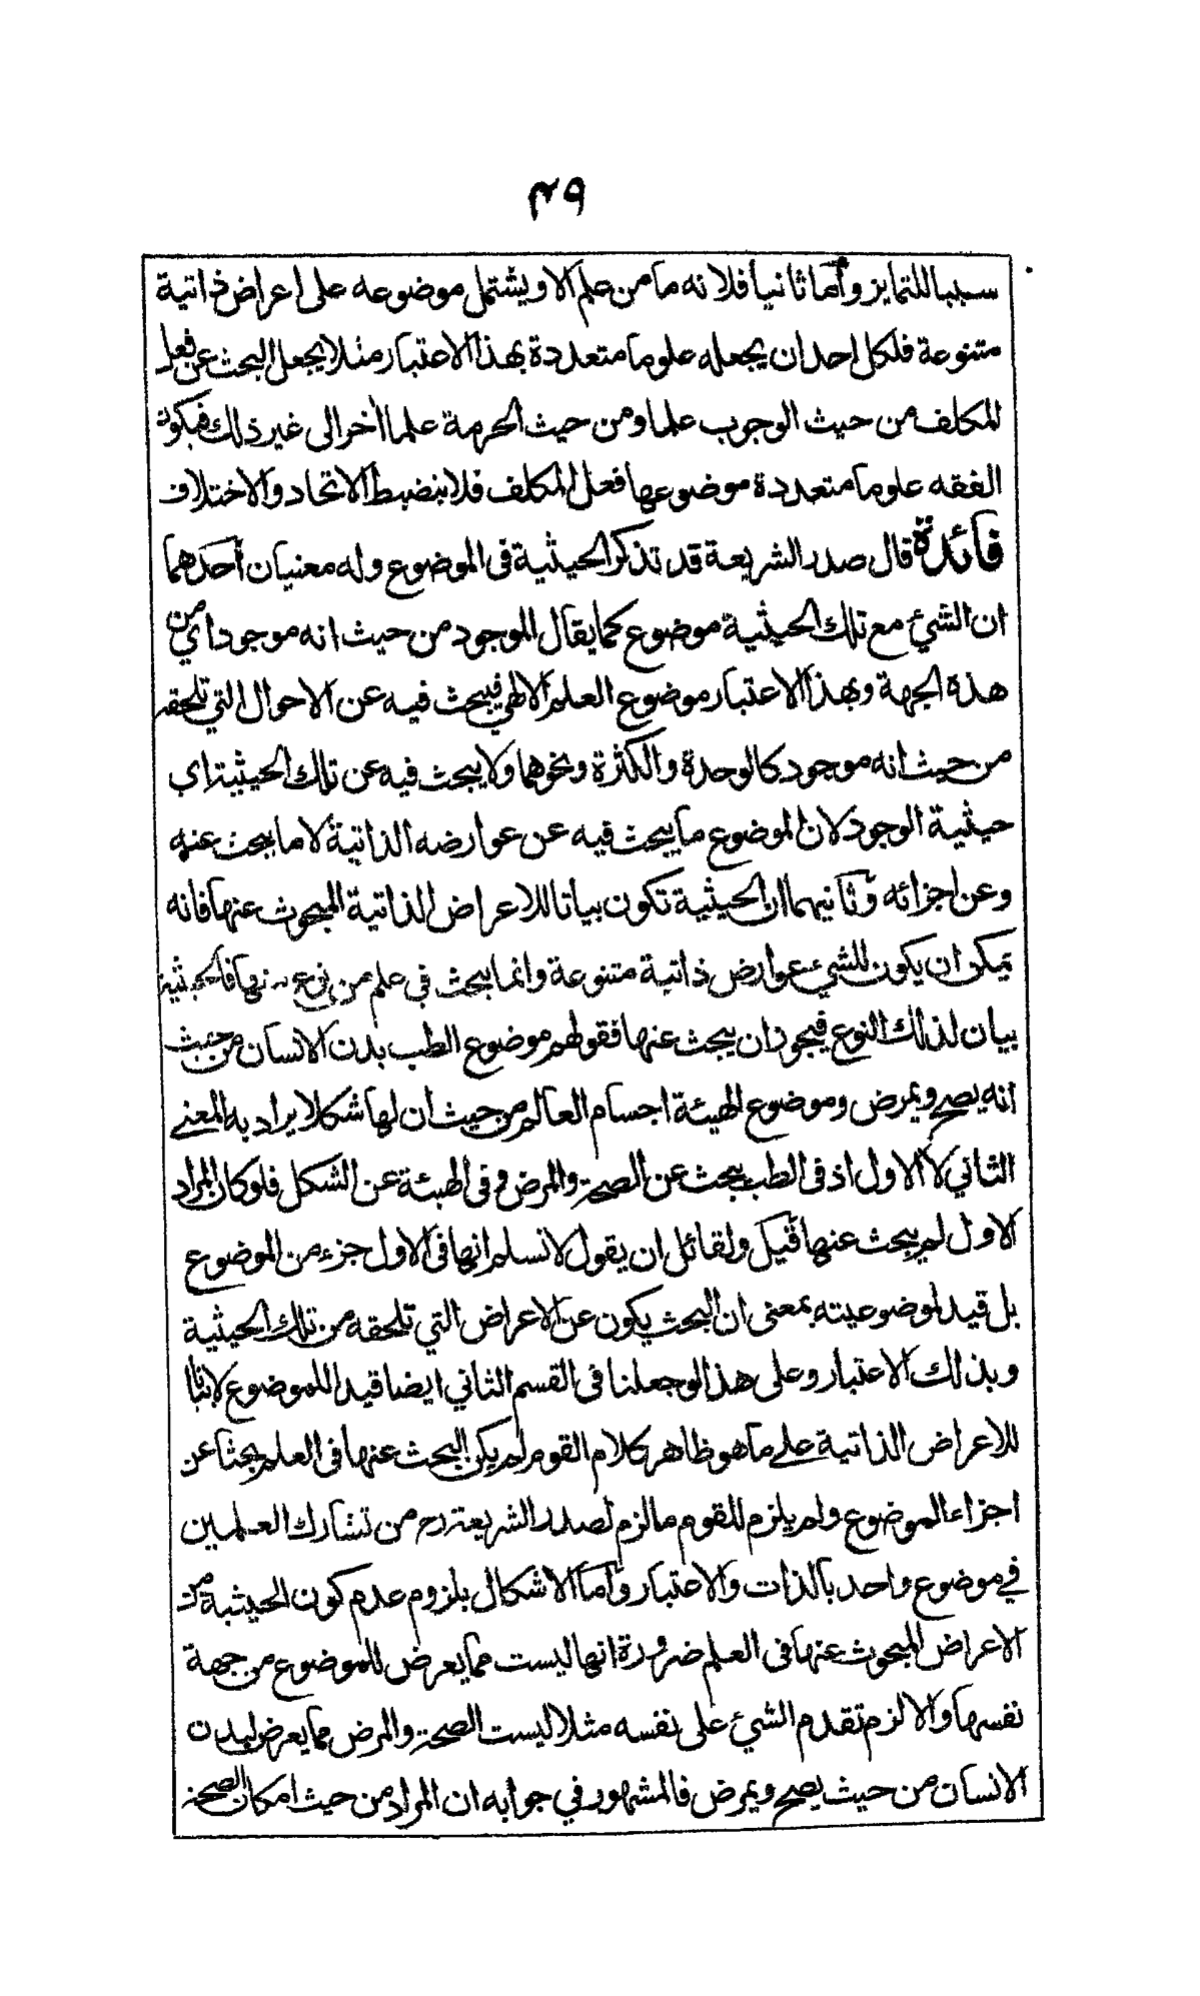 ٤٩
سببا للتمايز وأما ثانيا فلانه ما من علم الا ويشتمل موضوعه على اعراض ذاتية
متنوعة فلكل احد ان يجعله علوما متعددة بهذا الاعتبار مثلا يجعل البحث عن فعل
المكلف من حيث الوجوب علما ومن حيث الحرمة علما أخر الى غير ذلك فيكون
الفقه علوما متعددة موضوعها فعل المكلف فلا ينضبط الاتحاد والاختلاف
فائدة قال صدر الشريعة قد تذكر الحيثية في الموضوع وله معنيان أحدهما
ان الشيء مع تلك الحيثية موضوع كما يقال الموجود من حيث انه موجود اي من
هذه الجهة وبهذا الاعتبار موضوع العلم الالهي فيبحث فيه عن الاحوال التي تلحقه
من حيث انه موجود كالوحدة والكثرة ونحوهما ولا يبحث فيه عن تلك الحيثية اي
حيثية الوجود لان الموضوع ما يبحث فيه عن عوارضه الذاتية لا ما يبحث عنه
وعن اجزائه وثانيهما ان الحيثية تكون بيانا للاعراض الذاتية المبحوث عنها فانه
يمكن ان يكون للشيء عوارض ذاتية متنوعة وانما يبحث في علم من نوع منها فالحيثية
بيان لذلك النوع فيجوز ان يبحث عنها فقولهم موضوع الطب بدن الانسان من حيث
انه يصح ويمرض وموضوع الهيئة اجسام العالم من حيث ان لها شكلا يراد به المعنى
الثاني لا الاول اذ في الطب يبحث عن الصحة والمرض وفي الهيئة عن الشكل فلو كان المراد
الاول لم يبحث عنها قيل ولقائل ان يقول لا نسلم انها في الاول جزء من الموضوع
بل قيد لموضوعيته بمعنى ان البحث يكون عن الاعراض التي تلحقه من تلك الحيثية
وبذلك الاعتبار وعلى هذا لو جعلنا في القسم الثاني ايضا قيدا للموضوع لا بيانا
للاعراض الذاتية على ما هو ظاهر كلام القوم لم يكن البحث عنها في العلم بحثا عن
اجزاء الموضوع ولم يلزم للقوم ما لزم لصدر الشريعة رح من تشارك العلمين
في موضوع واحد بالذات والاعتبار وأما الاشكال بلزوم عدم كون الحيثية من
الاعراض المبحوث عنها في العلم ضرورة انها ليست مما يعرض للموضوع من جهة
نفسها والا لزم تقدم الشيء على نفسه مثلا ليست الصحة والمرض مما يعرض لبدن
الانسان من حيث يصح ويمرض فالمشهور في جوابه ان المراد من حيث امكان الصحة